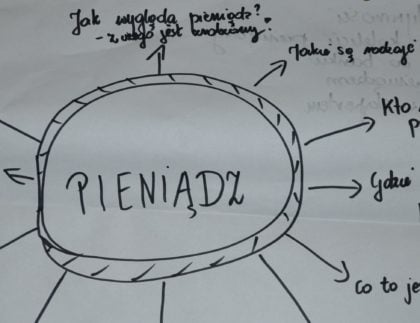 Jak wygląda pieniądz?
- z czego jest
Jakie są rodzaje
Kto
P
PIENIĄDZ
Gdzie
Co to je